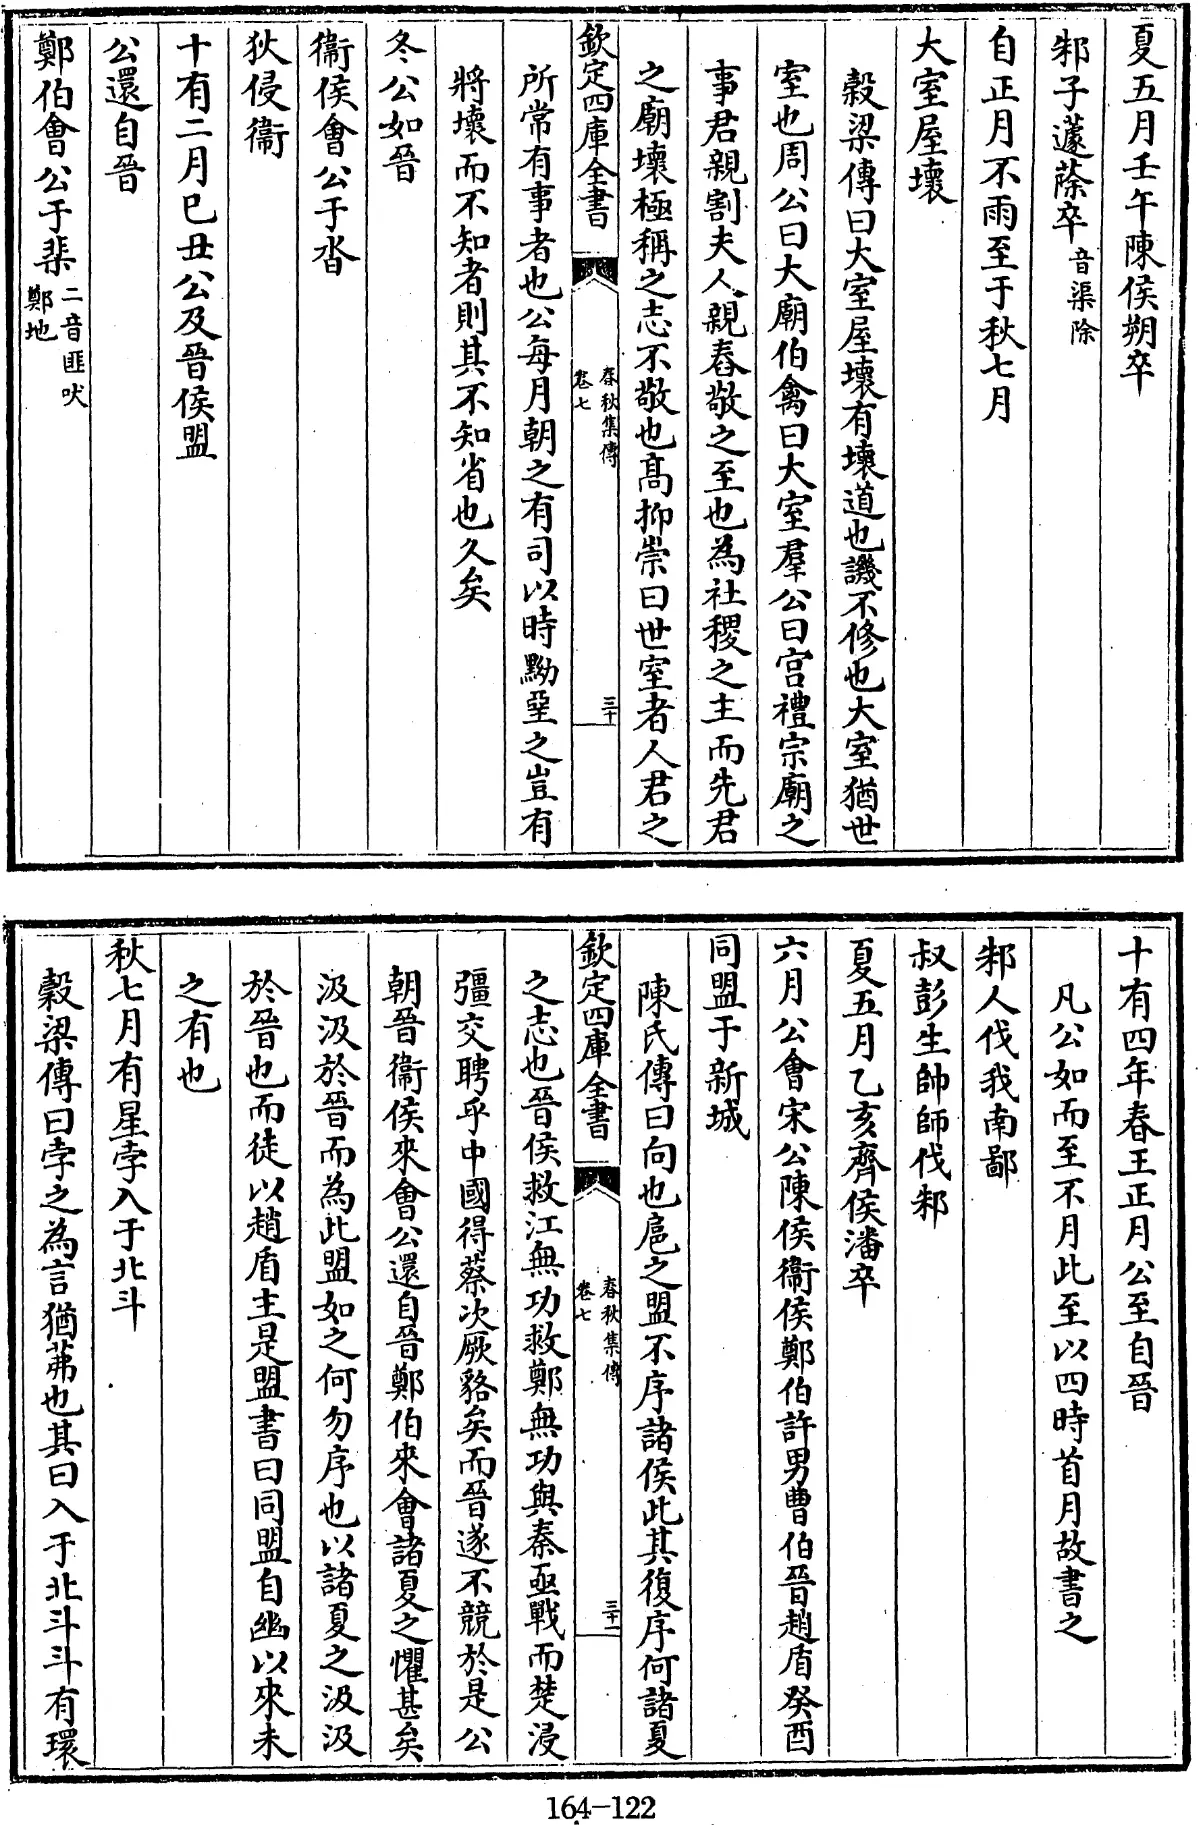 夏五月壬午陳侯朔卒
邾子蘧蒢卒音渠除
自正月不雨至于秋七月
大室屋壞
穀梁傳曰大室屋壞有壞道也譏不修也大室猶世
室也周公曰大廟伯禽曰大室羣公曰宮禮宗廟之
事君親割夫人親舂敬之至也為社稷之主而先君
之廟壞極稱之志不敬也髙抑崇曰世室者人君之
欽定四庫全書
春秋集傳
卷七
三十
所常有事者也公每月朝之有司以時黝堊之豈有
將壞而不知者則其不知省也久矣
冬公如晉
衞侯會公于沓
狄侵衞
十有二月己丑公及晉侯盟
公還自晉
鄭伯會公于棐二音匪吠
鄭地
十有四年春王正月公至自晉
凡公如而至不月此至以四時首月故書之
邾人伐我南鄙
叔彭生帥師伐邾
夏五月乙亥齊侯潘卒
六月公會宋公陳侯衞侯鄭伯許男曹伯晉趙盾癸酉
同盟于新城
陳氏傳曰向也扈之盟不序諸侯此其復序何諸夏
欽定四庫全書
春秋集傳
卷七
三十一
之志也晉侯救江無功救鄭無功與秦亟戰而楚浸
彊交聘乎中國得蔡次厥貉矣而晉遂不競於是公
朝晉衞侯來會公還自晉鄭伯來會諸夏之懼甚矣
汲汲於晉而為此盟如之何勿序也以諸夏之汲汲
於晉也而徒以趙盾主是盟書曰同盟自幽以來未
之有也
秋七月有星孛入于北斗
穀梁傳曰孛之為言猶茀也其曰入于北斗斗有環
164-122